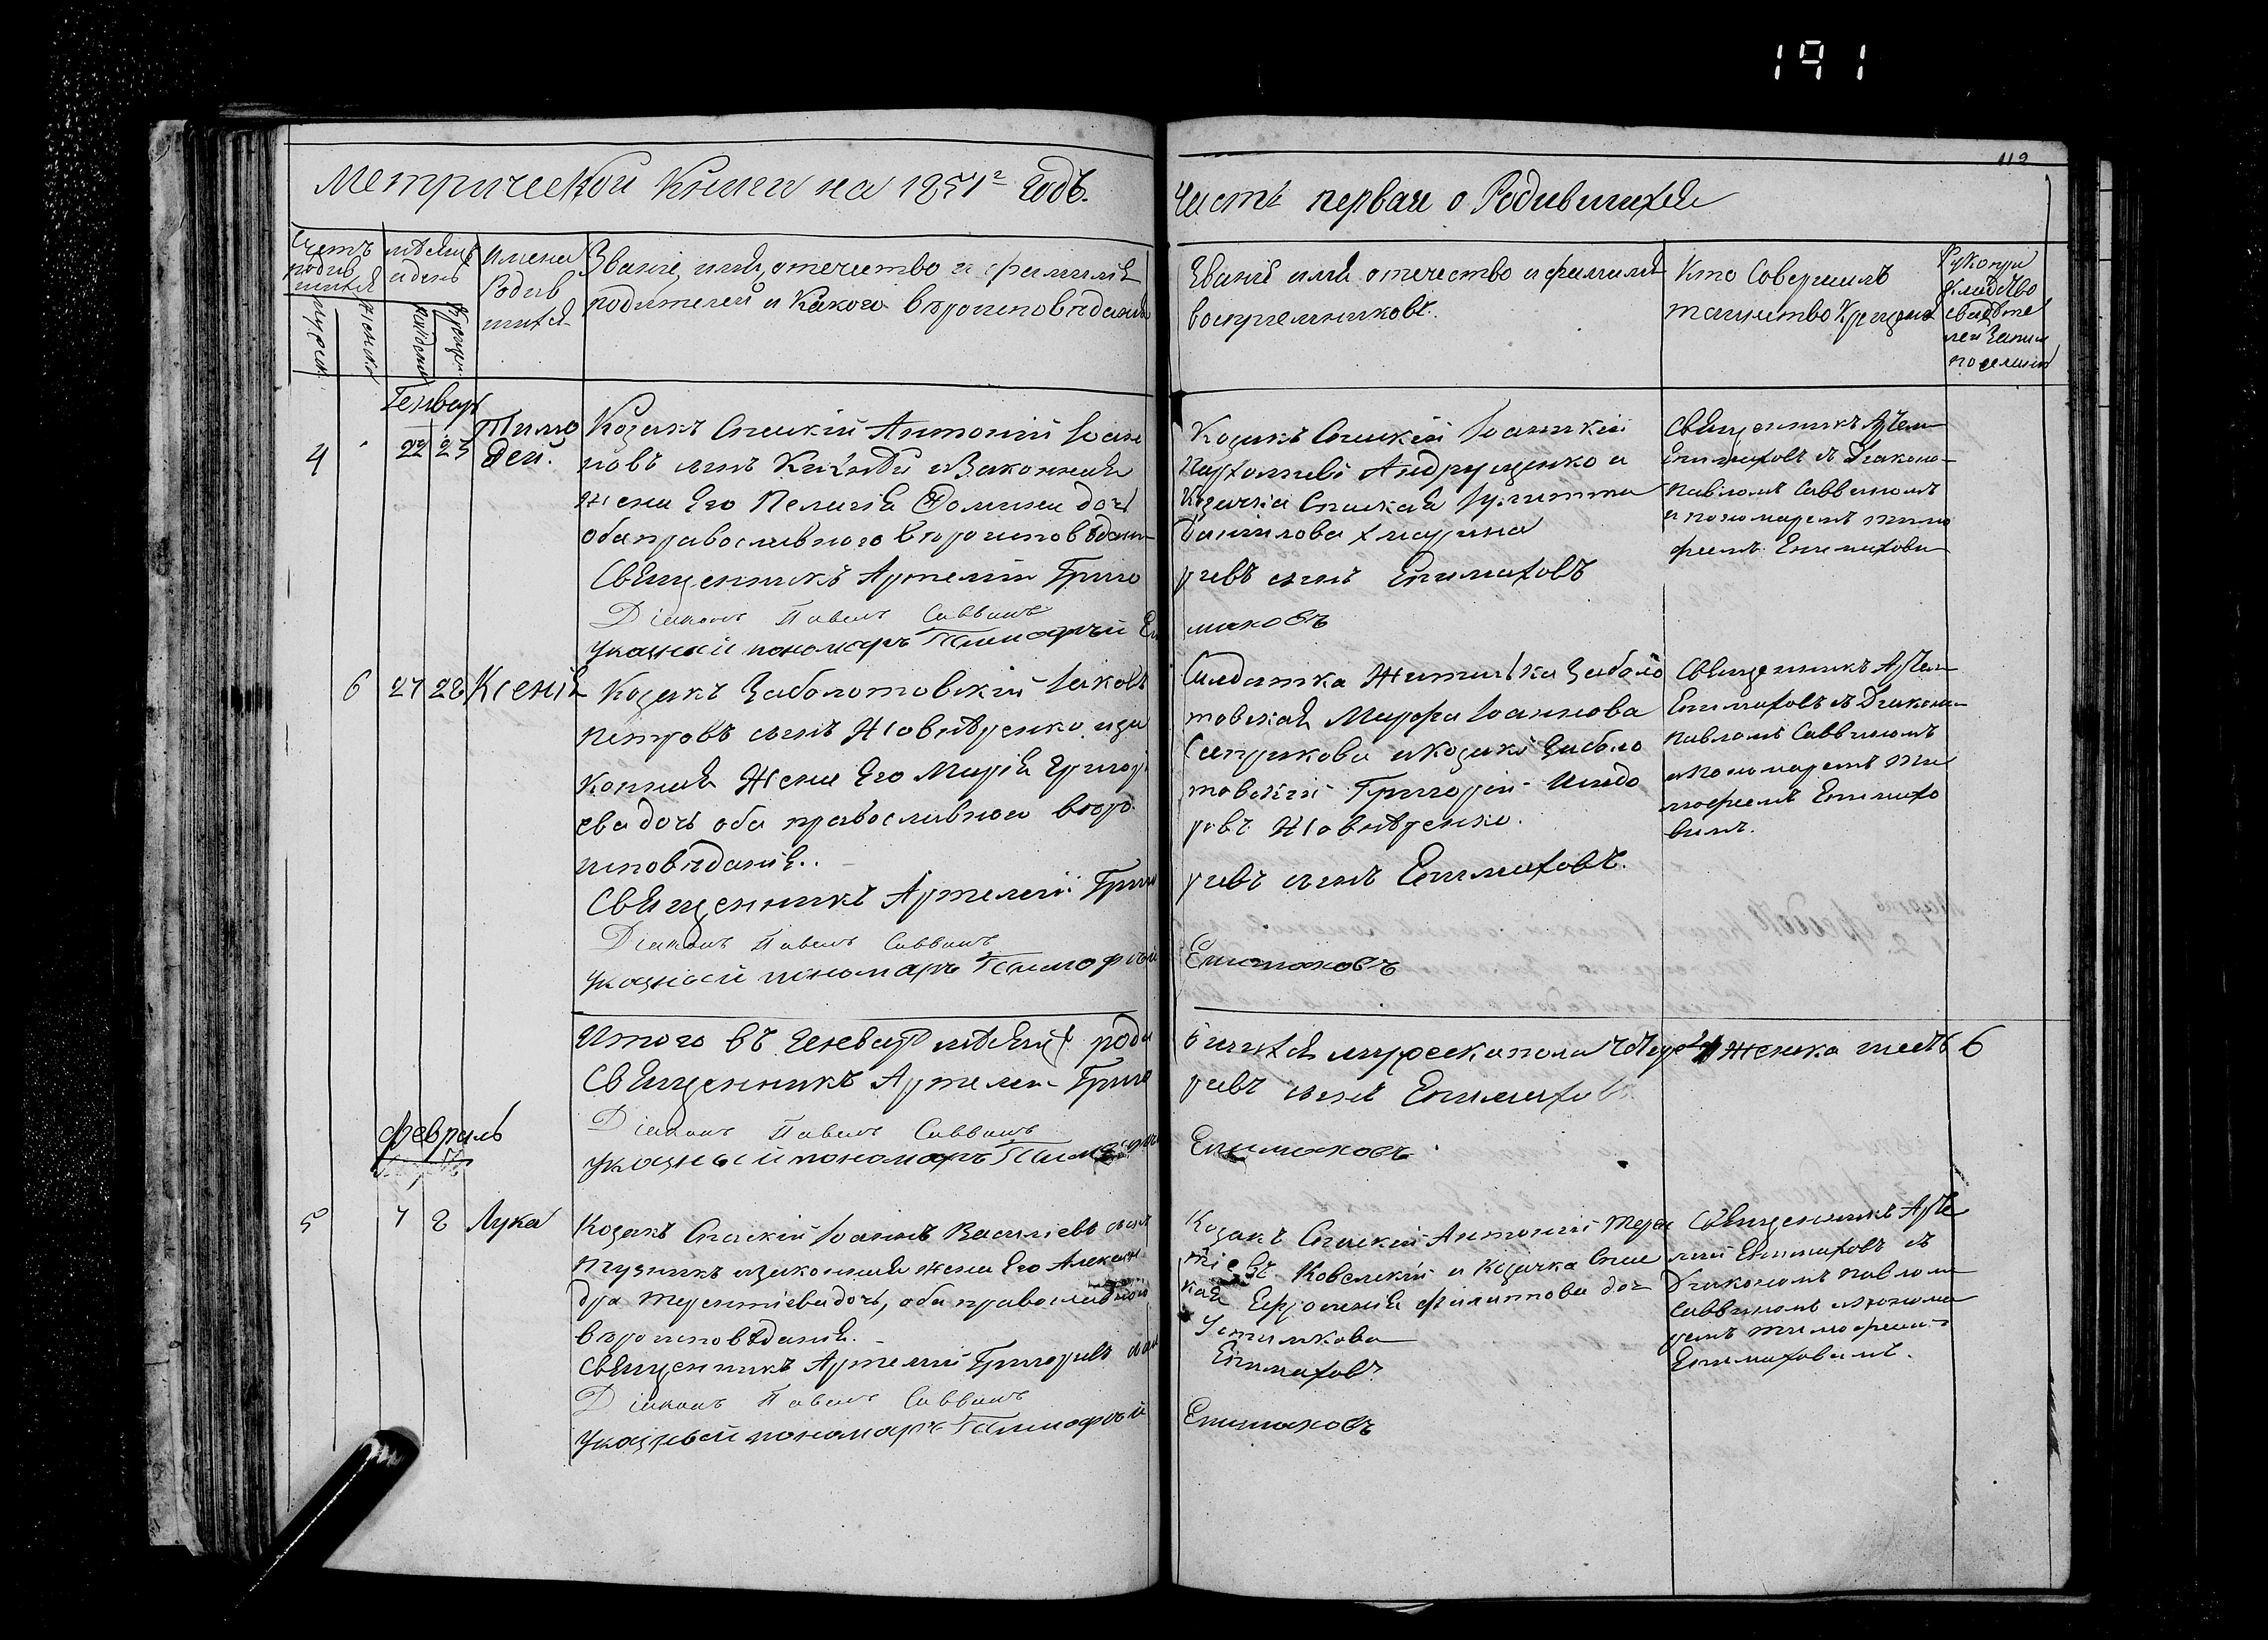 191
112
Метрической Книги на 1851 годъ.
Часть первая о Родившихся
Счетъ родившихся
мѣсяцъ и день
имена Родившихся
Званіе, имя, отечество и фамилія
родителей и Какого вѣроисповѣданія
Званіе имя отечество и фамилия
воспріемниковъ.
Кто Совершилъ
таинство Крещенія
Рукопри
кладство
свидѣте
лей Записи
по желанію
мужеск.
женск.
рожденія
крещен.
Генварь
4
22 23
Тимо
фей.
Козакъ Спаскій Антоній Іоан
новъ сынъ и Законная
жена Его Пелагія Фомина дочь
оба православного вѣроисповѣданія
Священникъ Артемій Григо
Діаконъ Павелъ Саввинъ
указный пономарь Тимофѣй Епи
Козакъ Спаскій Іоанникій
Андрущенко и
Козачка Спаская Іулитта
Данилова
рьевъ сынъ Епимаховъ
маховъ
Священникъ Артем
Епимаховъ съ Діакономъ
Павломъ Саввиномъ
и пономаремъ Тимо
феемъ Епимаховы
6
27 28
Ксенія
Козакъ Заболотовскій Іаковъ
Петровъ сынъ Жовнѣренко и за
конная Жена Его Марія Григорі
ева дочь оба православного вѣро
исповѣданія.
Священникъ Артемій Григо
Діаконъ Павелъ Саввинъ
указный пономарь Тимофѣй
Салдатка Жителька Заболо
товская Марфа Іоаннова
и козакъ Заболо
товскій Григорій
ровъ Жовнѣренко.
рьевъ сынъ Епимаховъ.
Епимаховъ
Священникъ Артем
Епимаховъ съ Діакономъ
Павломъ Саввиномъ
и пономаремъ Ти
мофеемъ Епимахо
вымъ.
Итого въ Генварѣ мѣсяцѣ роди
Священникъ Артемій Григо
Діаконъ Павелъ Саввинъ
указный пономарь
вшихся мужеска пола четыре 4 женска шесть 6
рьевъ сынъ Епимаховъ
Епимаховъ
февраль
5
1 2
Лука
Козакъ Спаскій Іоаннъ Василіевъ сынъ
Пузикъ и законная жена Его Алексан
дра Терентіева дочь, оба православного
вѣроисповѣданія.
Священникъ Артемій Григорьевъ сынъ
Діаконъ Павелъ Саввинъ
указный пономарь Тимофѣй
Козакъ Спаскій Антоній Терен
тіевъ Ковалскій и Козачка Спас
кая Ефросинія Филиппова доч
Устимкова
Епимаховъ
Епимаховъ
Священникъ Арте
мій Епимаховъ съ
Діакономъ Павломъ
Саввиномъ и понома
ремъ Тимофеемъ
Епимаховымъ.